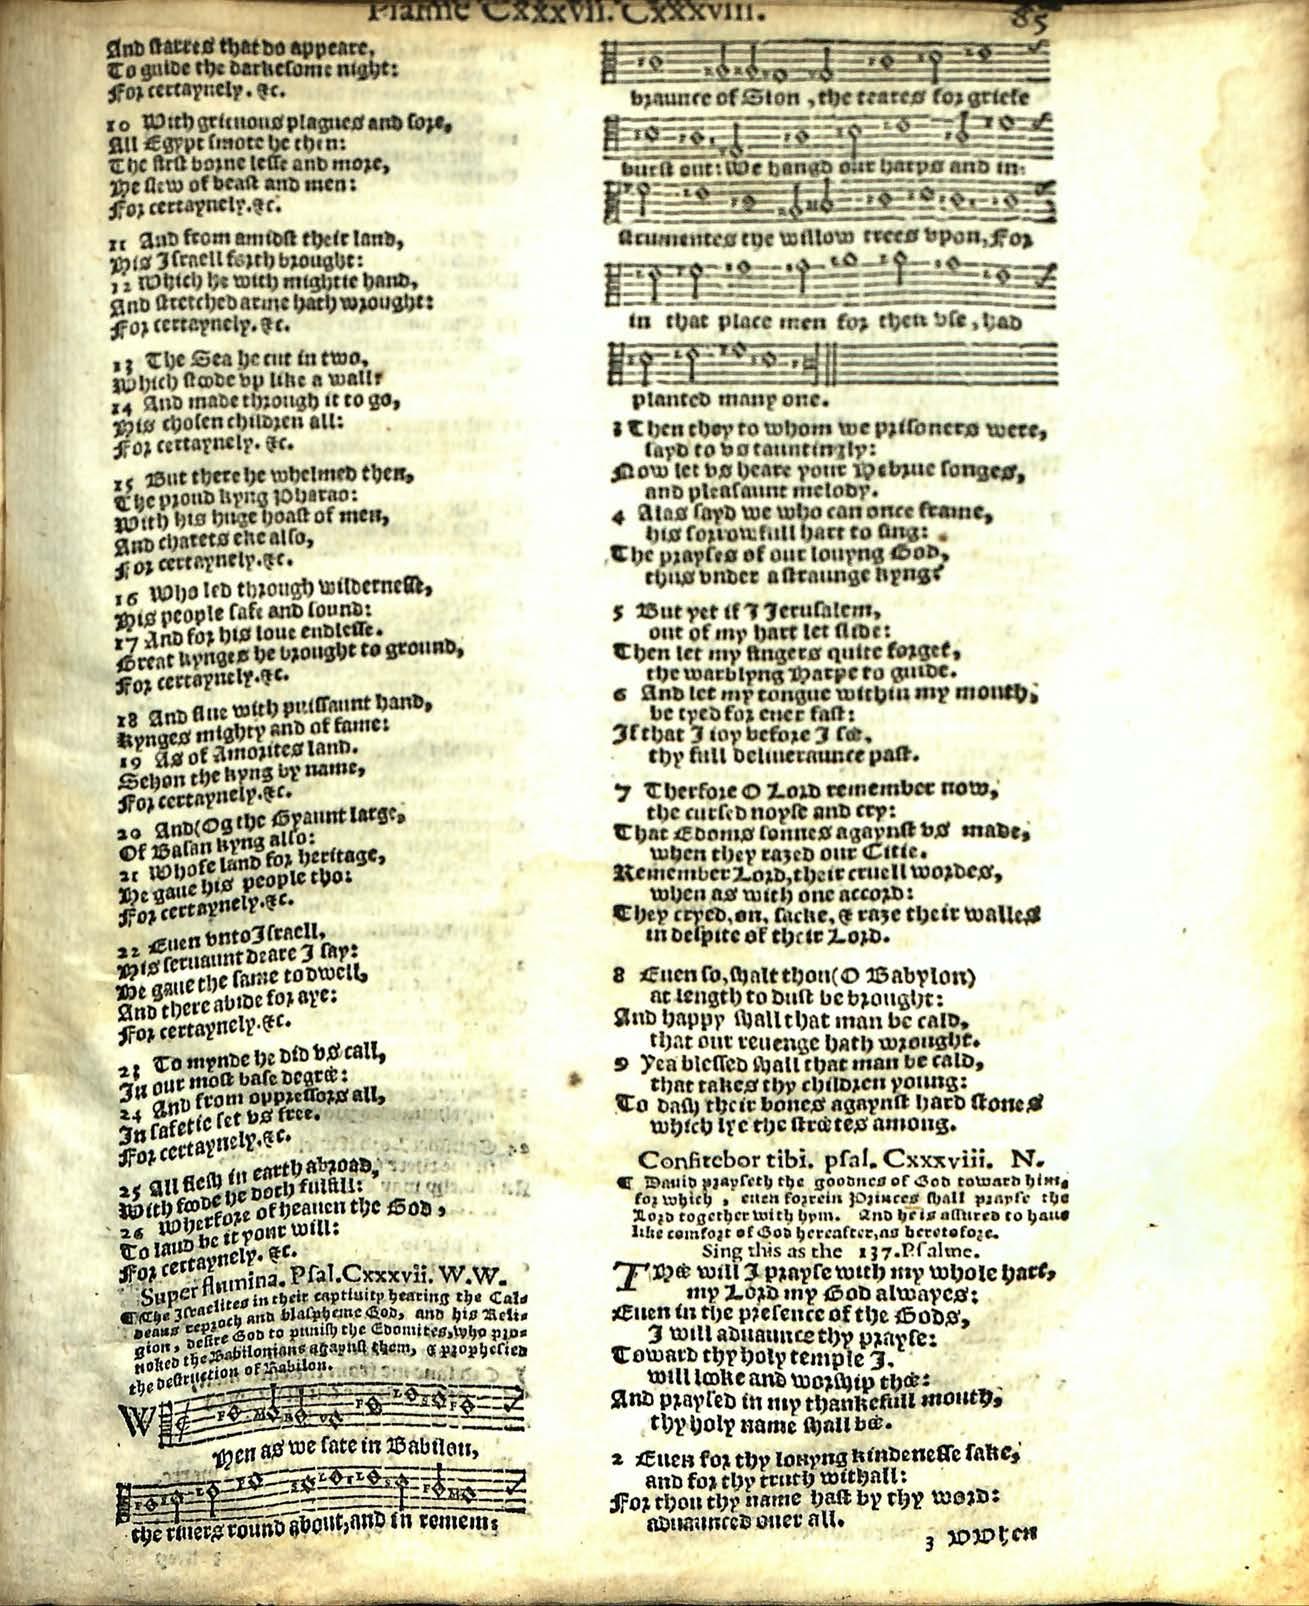 Psalme Cxxxvii. Cxxxviii.
85
And starres that do appeare,
To guide the darkesome night:
For certaynely. &c.
10 With grieuous plagues and sore,
All Egypt smote he then:
The first borne lesse and more,
He slew of beast and men:
For certaynely. &c.
11 And from amidst their land,
His Israell forth brought:
12 Which he with mightie hand,
And stretched arme hath wrought:
For certaynely. &c.
13 The Sea he cut in two,
Which stoode vp like a wall:
14 And made through it to go,
His chosen children all:
For certaynely. &c.
15 But there he whelmed then,
The proud kyng Pharao:
With his huge hoast of men,
And charets eke also,
For certaynely. &c.
16 Who led through wildernesse,
His people safe and sound:
17 And for his loue endlesse.
Great kynges he brought to ground,
For certaynely. &c.
18 And slue with puissaunt hand,
Kynges mighty and of fame:
19 As of Amorites land.
Sehon the kyng by name,
For certaynely. &c.
20 And (Og the Gyaunt large,
Of Basan kyng also:
21 Whose land for heritage,
He gaue his people tho:
For certaynely. &c.
22 Euen vnto Israell,
His seruaunt deare I say:
He gaue the same to dwell,
And there abide for aye:
For certaynely. &c.
23 To mynde he did vs call,
In our most base degrée:
24 And from oppressors all,
In safetie set vs free.
For certaynely. &c.
25 All flesh in earth abroad,
With foode he doth fulfill:
26 Wherfore of heauen the God,
To laud be it your will:
For certaynely. &c.
Super flumina. Psal. Cxxxvii. W.W.
¶ The Israelites in their captiuity hearing the Cal-
deans reproch and blaspheme God, and his Reli-
gion, desire God to punish the Edomites, who pro-
uoked the Babilonians agaynst them, & prophesied
the destruction of Babilon.
WHen as we sate in Babilon,
the riuers round about, and in remem:
braunce of Sion, the teares for griefe
burst out: We hangd our harps and in-
strumentes the willow trees vpon, For
in that place men for their vse, had
planted many one.
3 Then they to whom we prisoners were,
sayd to vs tauntingly:
Now let vs heare your Hebrue songes,
and pleasaunt melody.
4 Alas sayd we who can once frame,
his sorrowfull hart to sing:
The prayses of our louyng God,
thus vnder a straunge kyng?
5 But yet if I Jerusalem,
out of my hart let slide:
Then let my fingers quite forget,
the warblyng Harpe to guide.
6 And let my tongue within my mouth,
be tyed for euer fast:
If that I ioy before I sée,
thy full deliueraunce past.
7 Therfore O Lord remember now,
the cursed noyse and cry:
That Edoms sonnes agaynst vs made,
when they razed our Citie.
Remember Lord, their cruell wordes,
when as with one accord:
They cryed, on, sacke, & raze their walles
in despite of their Lord.
8 Euen so, shalt thou (O Babylon)
at length to dust be brought:
And happy shall that man be cald,
that our reuenge hath wrought.
9 Yea blessed shall that man be cald,
that takes thy children young:
To dash their bones agaynst hard stones
which lye the stréetes among.
Confitebor tibi. psal. Cxxxviii. N.
¶ Dauid prayseth the goodnes of God toward him,
for which, euen forrein Princes shall prayse the
Lord together with hym. And he is assured to haue
like comfort of God hereafter, as heretofore.
Sing this as the 137. Psalme.
THée will I prayse with my whole hart,
my Lord my God alwayes:
Euen in the presence of the Gods,
I will aduaunce thy prayse:
Toward thy holy temple I,
will looke and worship thée:
And praysed in my thankefull mouth,
thy holy name shall bée.
2 Euen for thy louyng kindenesse sake,
and for thy truth withall:
For thou thy name hast by thy word:
aduaunced ouer all.
3 VVhen